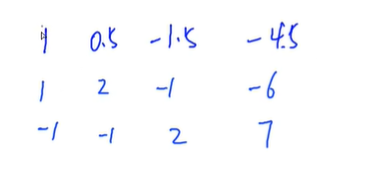 1 0.5 -1.5 -4.5
1 2 -1 -6
-1 -1 2 7